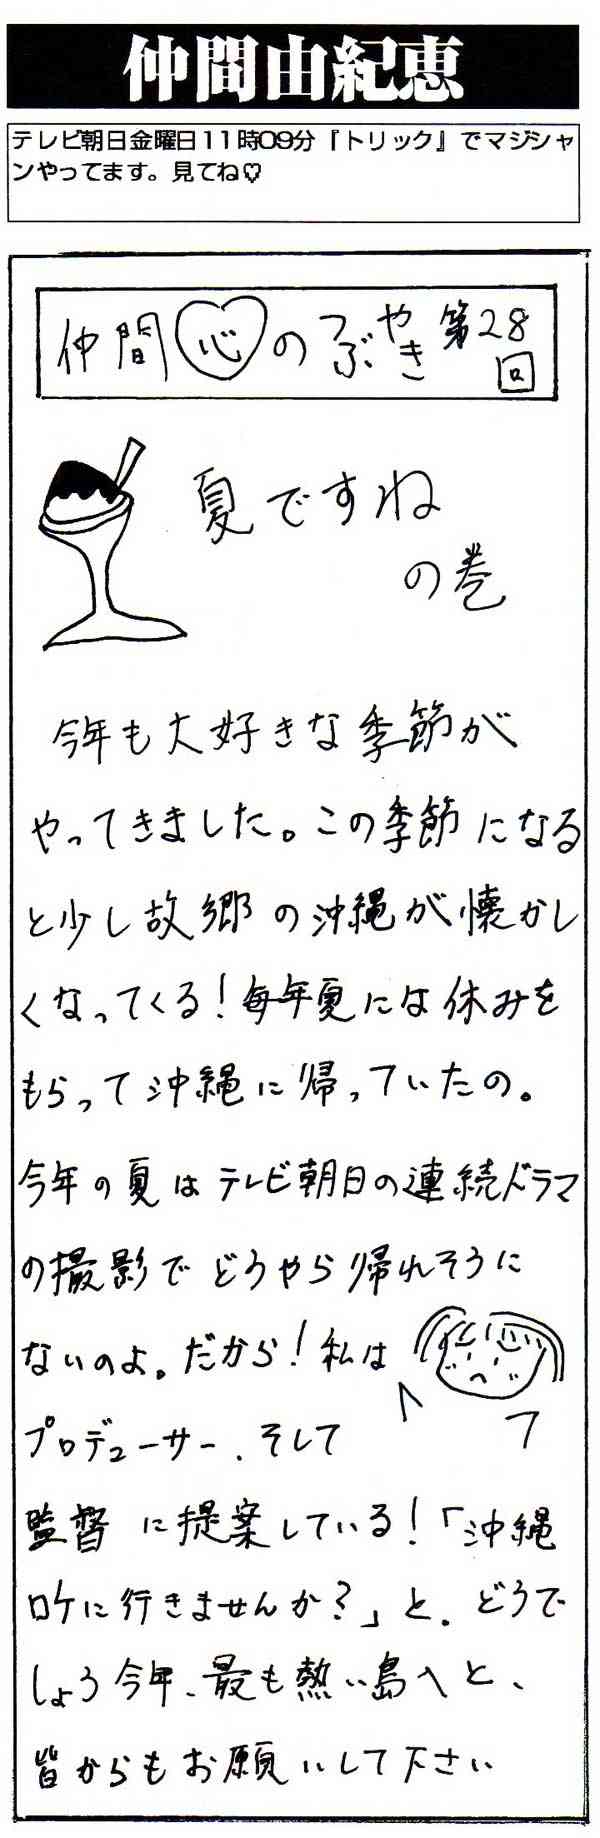 仲間由紀恵
テレビ朝日金曜日11時09分『トリック』でマジシャ
ンやってます。見てね♡
仲間心のつぶやき第28回
夏ですね
の巻
今年も大好きな季節が
やってきました。この季節になる
と少し故郷の沖縄が懐かし
くなってくる!毎年夏には休みを
もらって沖縄に帰っていたの。
今年の夏はテレビ朝日の連続ドラマ
の撮影でどうやら帰れそうに
ないのよ。だから!私は
プロデューサー、そして
監督に提案している!「沖縄
ロケに行きませんか?」と。どうで
しょう今年、最も熱い島へと、
皆からもお願いして下さい